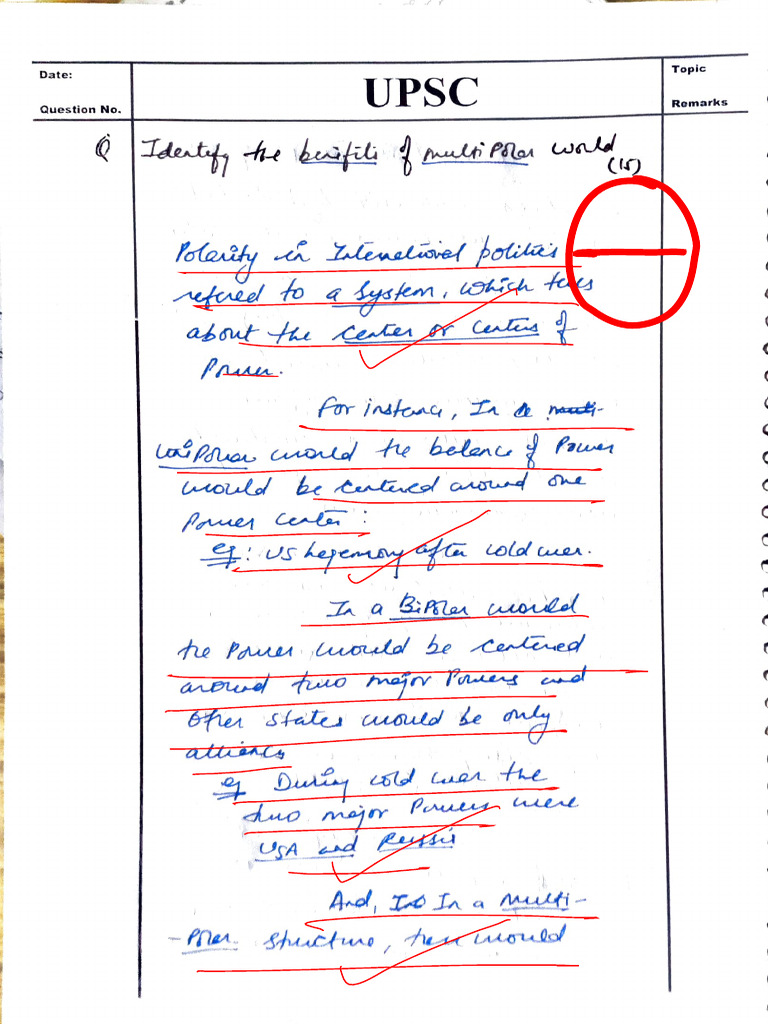 Date:
Question No.
UPSC
Topic
Remarks
Q Identify the benefits of multipolar world
(15)
Polarity in International politics
refered to a system, which tells
about the center or centers of
Power.
For instance, In a multi-
unipolar would the balance of Power
would be centered around one
Power center:
eg: US hegemony after cold war.
In a Bipolar would
the Power would be centered
around two major Powers and
other states would be only
alliances
eg During cold war the
two major Powers were
USA and Russia
And, In a multi-
-polar structure, there would